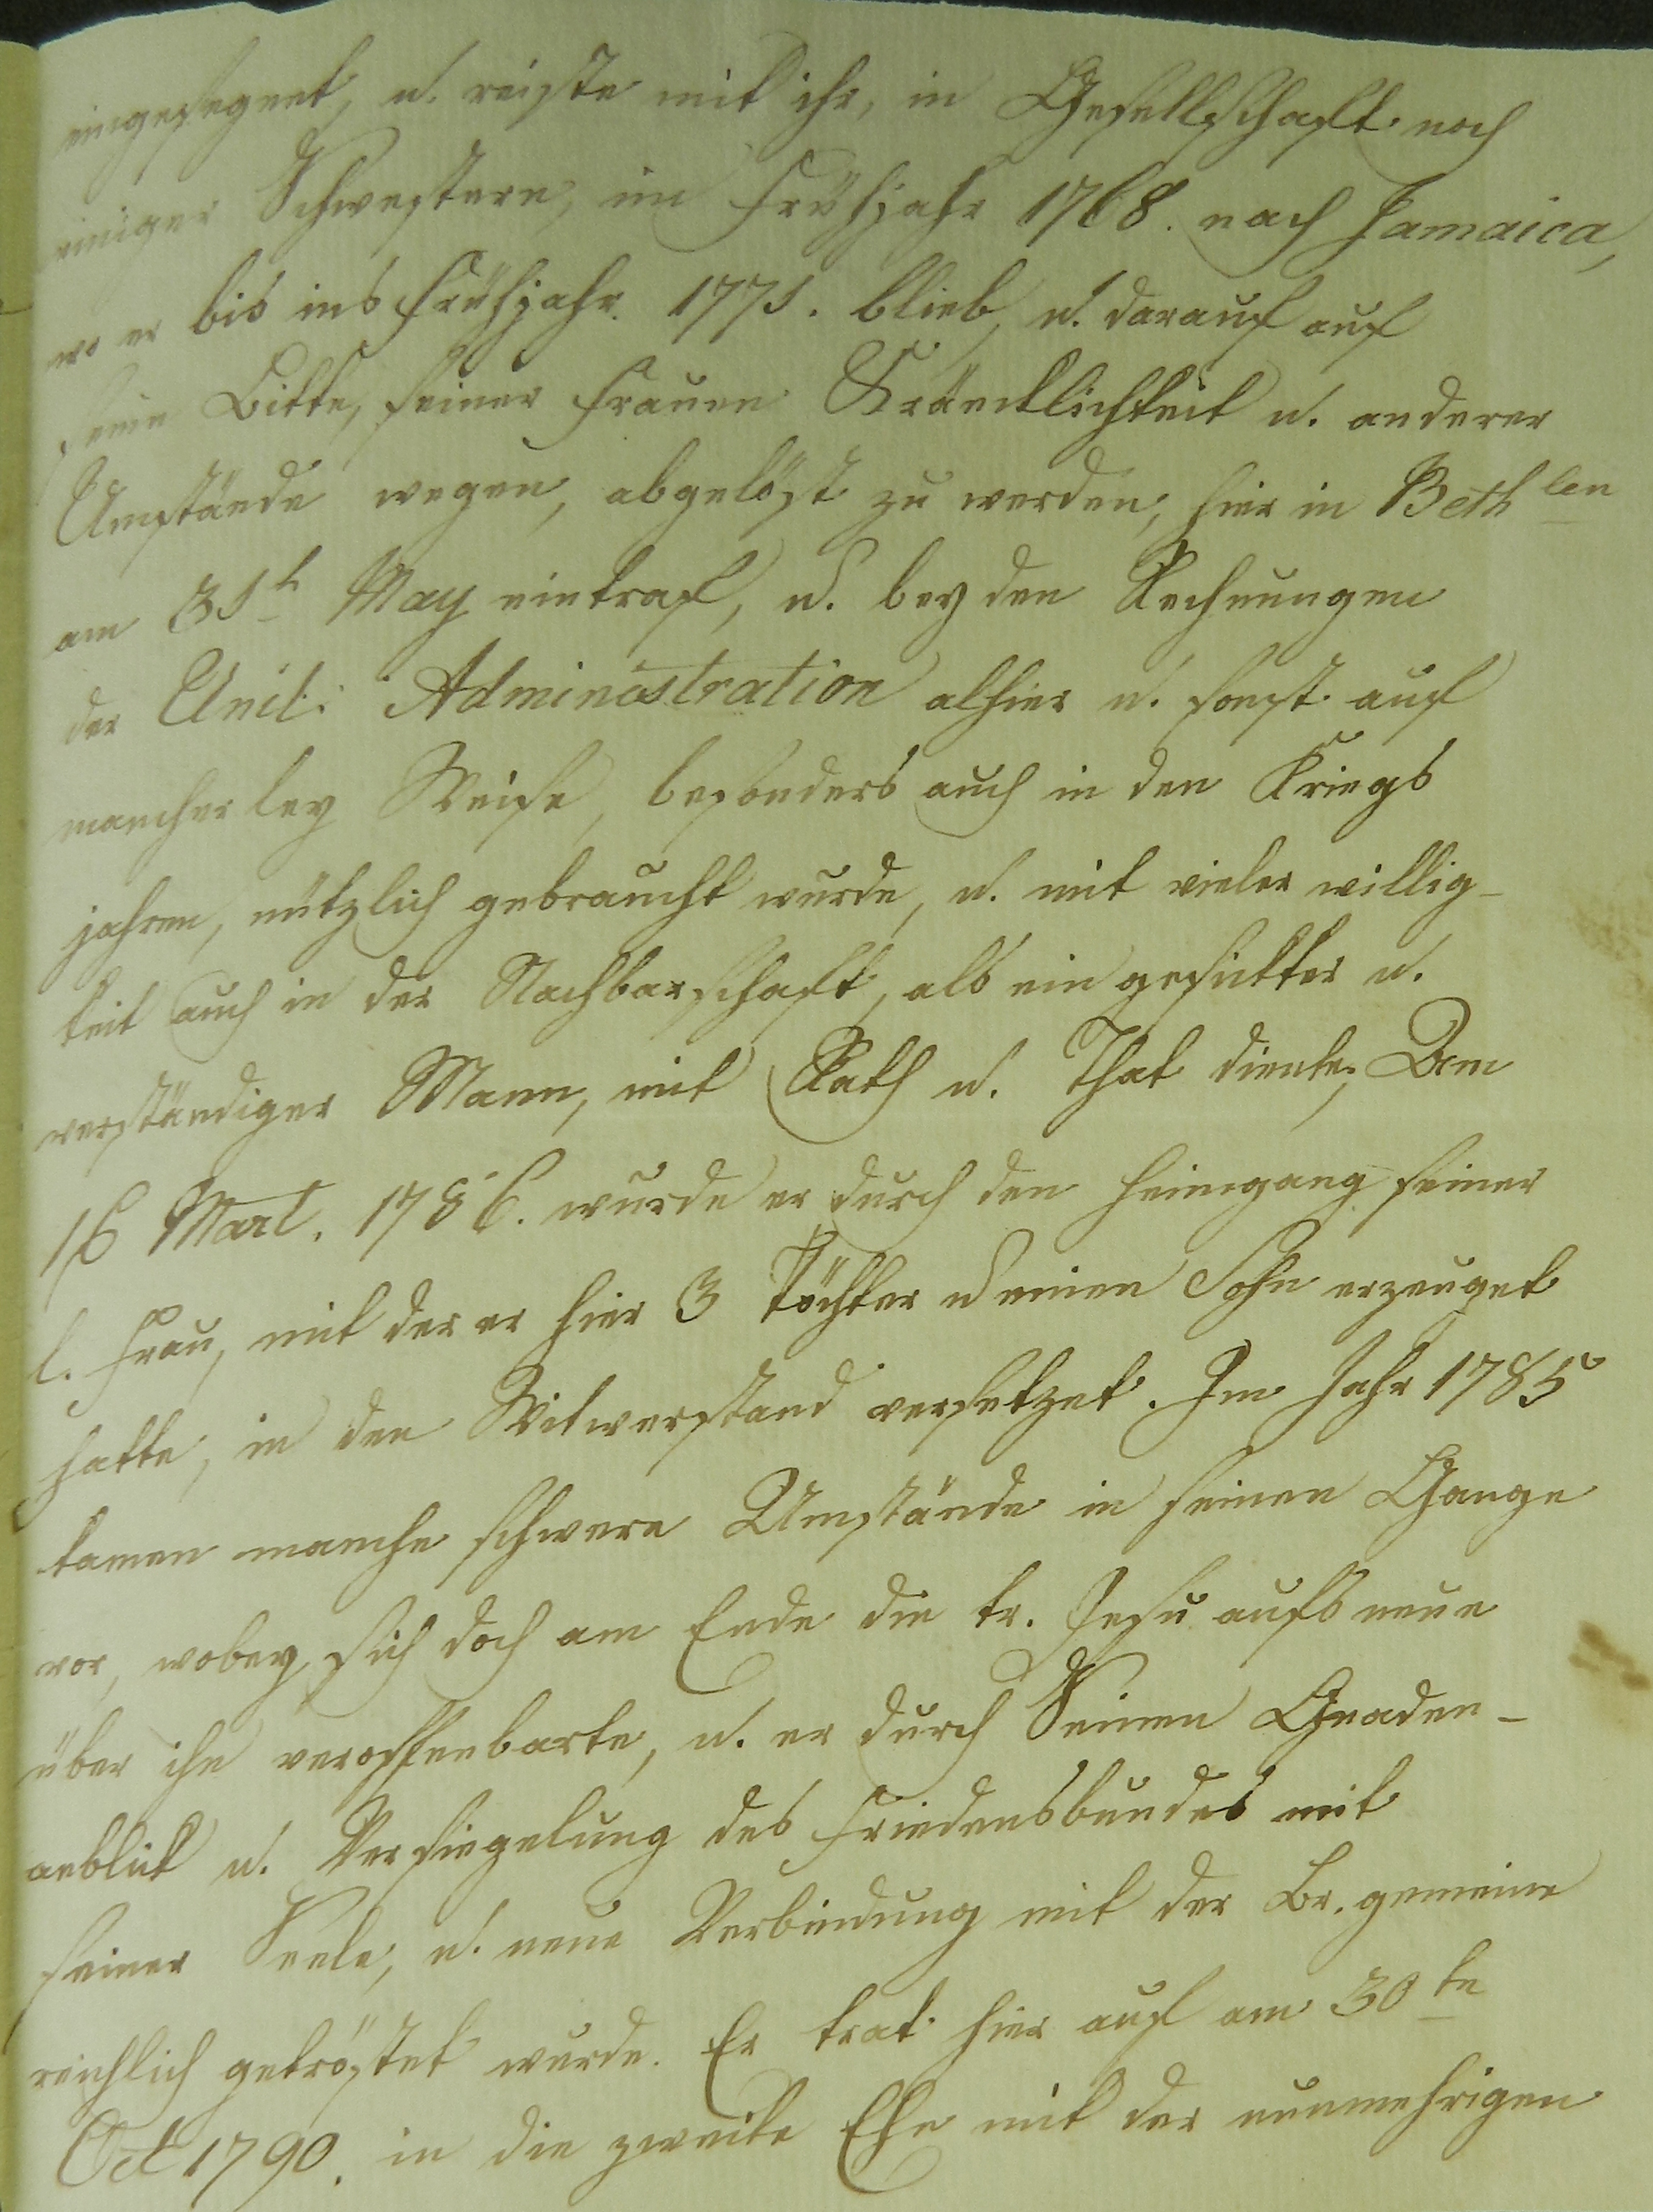 eingesegnet, u. reiste mit ihr, in Gesellschaft noch
einiger Schwestern, im Frühjahr 1768. nach Jamaica,
wo er bis ins Frühjahr 1771. blieb, u. darauf auf
seine Bitte, seiner Frauen Kräncklichkeit u. anderer
Umstände wegen, abgelöst zu werden, hier in Bethlen
am 31t May eintraf, u. bey den Rechnungen
der Unit: Administration alhier u. sonst auf
mancherley Weise, besonders auch in den Kriegs
jahren, nützlich gebraucht wurde, u. mit vieler willig-
keit auch in der Nachbarschaft, als ein gesitteter u.
verständiger Mann, mit Rath u. That diente; Am
16 Mart. 1786. wurde er durch den Heimgang seiner
l. Frau, mit der er hier 3 Töchter u einen Sohn erzeuget
hatte, in den Witwerstand versetzet. Im Jahr 1785
kamen manche schwere Umstände in seinen Gange
vor, wobey sich doch am Ende die tr. Jesu aufs neue
über ihn veroffenbarte, u. er durch Seinen Gnaden-
anblick u. Versiegelung des Friedensbundes mit
seiner Seele, u. neue Verbindung mit der Br. gemeine
reichlich getröstet wurde. Er trat hier auf am 30te
Oct 1790. in die zweite Ehe mit der nunmehrigen